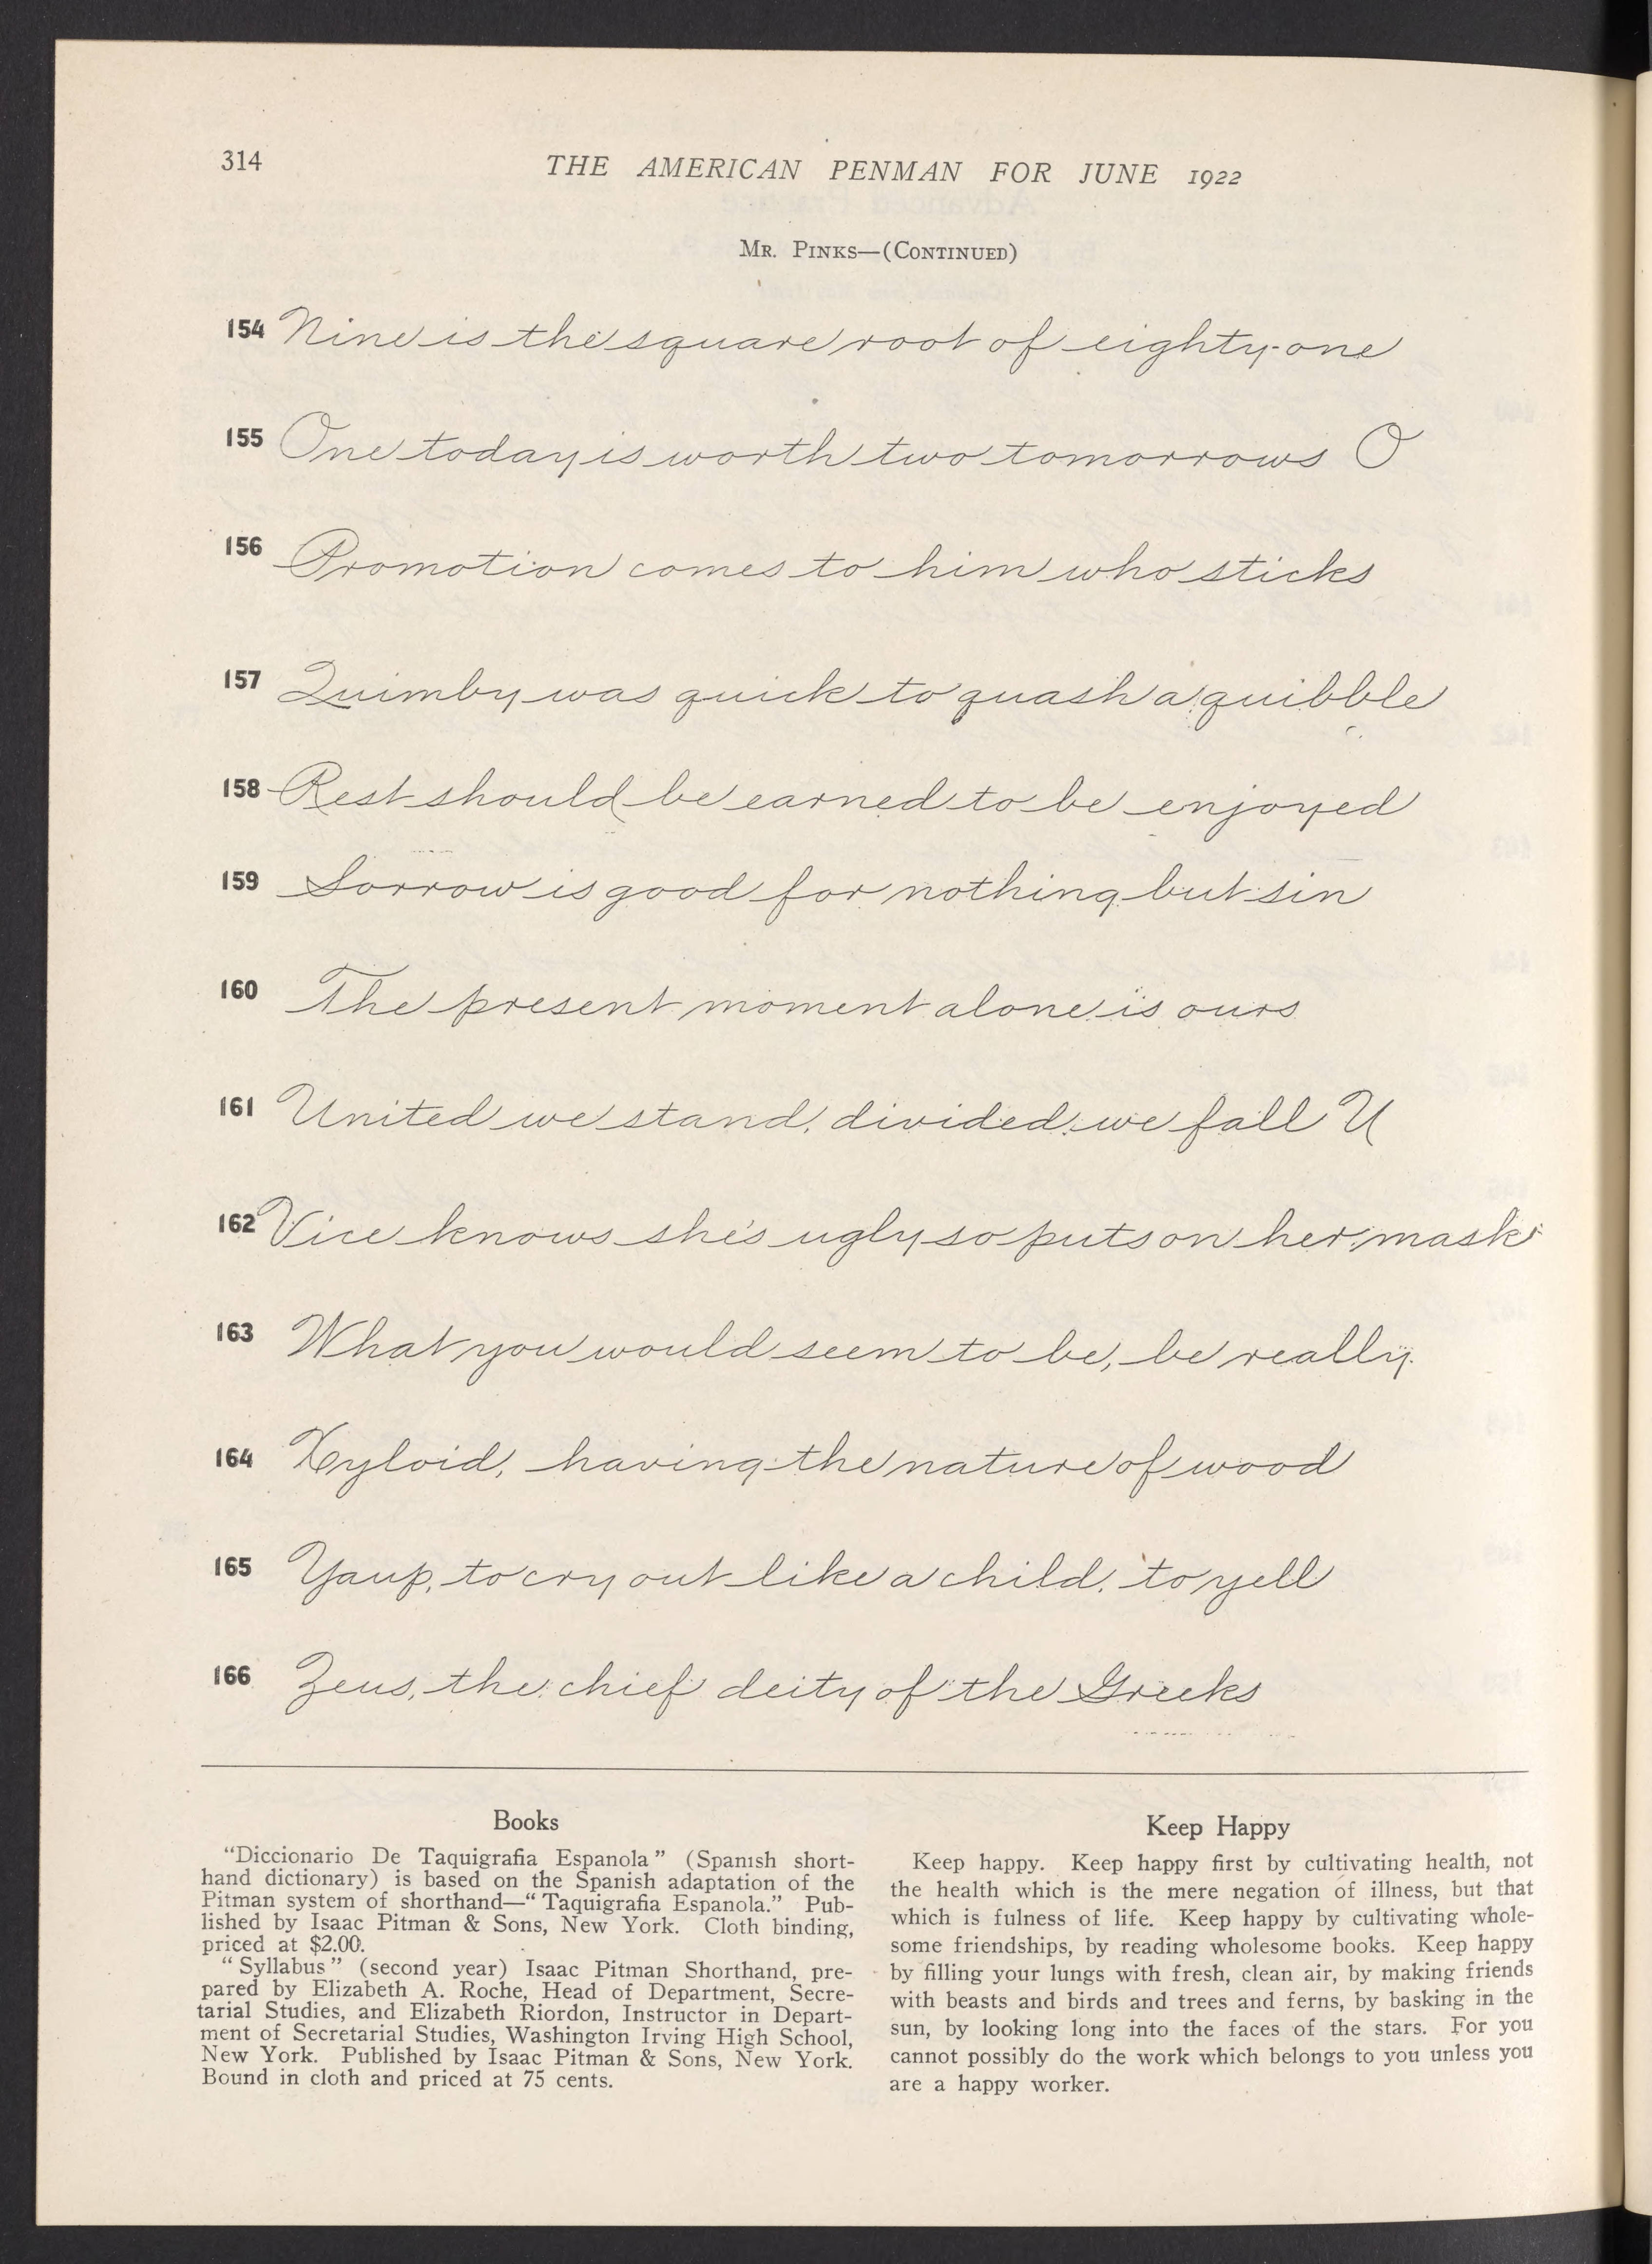 314
THE AMERICAN PENMAN FOR JUNE 1922
MR. PINKS—(CONTINUED)
154 Nine is the square root of eighty-one
155 One today is worth two tomorrows O
156 Promotion comes to him who sticks
157 Quimby was quick to quash a quibble
158 Rest should be earned to be enjoyed
159 Sorrow is good for nothing but sin
160 The present moment alone is ours
161 United we stand, divided we fall U
162 Vice knows she's ugly so puts on her mask
163 What you would seem to be, be really.
164 Xyloid, having the nature of wood
165 Yaup, to cry out like a child, to yell
166 Zeus, the chief deity of the Greeks
Books
"Diccionario De Taquigrafia Espanola" (Spanish short-
hand dictionary) is based on the Spanish adaptation of the
Pitman system of shorthand—"Taquigrafia Espanola." Pub-
lished by Isaac Pitman & Sons, New York. Cloth binding,
priced at $2.00.
"Syllabus" (second year) Isaac Pitman Shorthand, pre-
pared by Elizabeth A. Roche, Head of Department, Secre-
tarial Studies, and Elizabeth Riordon, Instructor in Depart-
ment of Secretarial Studies, Washington Irving High School,
New York. Published by Isaac Pitman & Sons, New York.
Bound in cloth and priced at 75 cents.
Keep Happy
Keep happy. Keep happy first by cultivating health, not
the health which is the mere negation of illness, but that
which is fulness of life. Keep happy by cultivating whole-
some friendships, by reading wholesome books. Keep happy
by filling your lungs with fresh, clean air, by making friends
with beasts and birds and trees and ferns, by basking in the
sun, by looking long into the faces of the stars. For you
cannot possibly do the work which belongs to you unless you
are a happy worker.